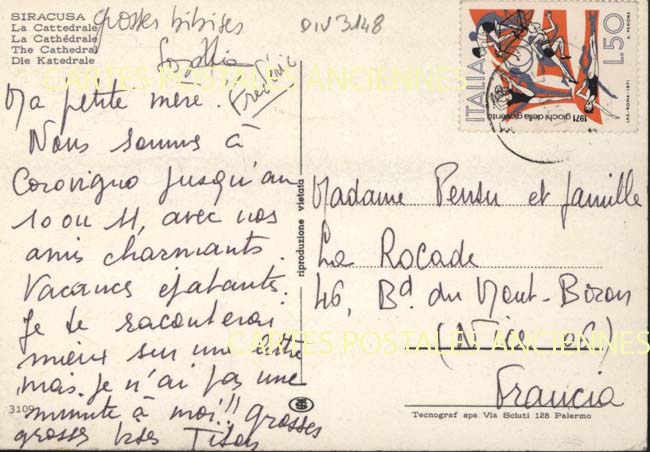 SIRACUSA
La Cattedrale
La Cathédrale
The Cathedral
Die Katedrale
grosses bibises
Frédéric
DIV3148
Ma petite mère.
Nous sommes à
Corovigno jusqu'au
10 ou 11, avec nos
amis charmants.
Vacances épatantes.
Je te raconterai
mieux sur une lettre
mais je n'ai pas une
minute à moi!! grosses
grosses bises
3109
riproduzione vietata
ITALIA
L.50
1971 giochi della gioventù
I.P.S.-ROMA-1971
Madame Pensu et famille
La Rocade
46, Bd. du Mont-Boron
(Nice -06)
Francia
Tecnograf spa Via Sciuti 128 Palermo
CARTES POSTALES ANCIENNES
CARTES POSTALES ANCIENNES